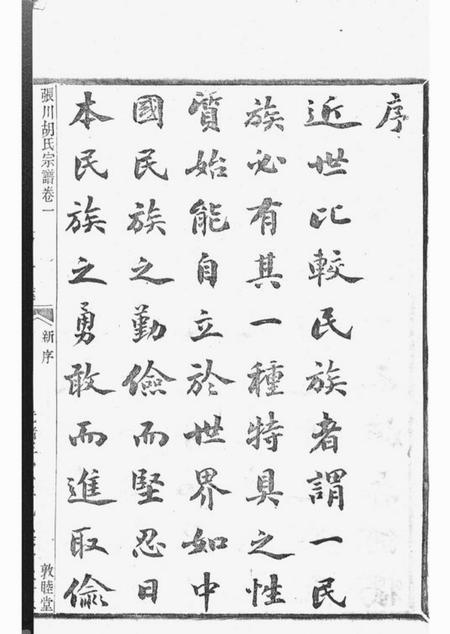 序
近世比較民族者謂一民
族必有其一種特具之性
質始能自立於世界如中
國民族之勤儉而堅忍日
本民族之勇敢而進取儉
張川胡氏宗譜卷一
新序
敦睦堂